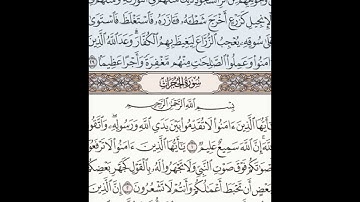 الْإِنجِيلِ كَزَرْعٍ أَخْرَجَ شَطْـَٔهُۥ فَـَٔازَرَهُۥ فَٱسْتَغْلَظَ فَٱسْتَوَىٰ
عَلَىٰ سُوقِهِۦ يُعْجِبُ ٱلزُّرَّاعَ لِيَغِيظَ بِهِمُ ٱلْكُفَّارَ ۗ وَعَدَ ٱللَّهُ ٱلَّذِينَ
ءَامَنُوا۟ وَعَمِلُوا۟ ٱلصَّـٰلِحَـٰتِ مِنْهُم مَّغْفِرَةً وَأَجْرًا عَظِيمًۢا ٢٩
سُورَةُ الحُجُرَاتِ
بِسْمِ ٱللَّهِ ٱلرَّحْمَـٰنِ ٱلرَّحِيمِ
يَـٰٓأَيُّهَا ٱلَّذِينَ ءَامَنُوا۟ لَا تُقَدِّمُوا۟ بَيْنَ يَدَىِ ٱللَّهِ وَرَسُولِهِۦ ۖ وَٱتَّقُوا۟
ٱللَّهَ ۚ إِنَّ ٱللَّهَ سَمِيعٌ عَلِيمٌ ١ يَـٰٓأَيُّهَا ٱلَّذِينَ ءَامَنُوا۟ لَا تَرْفَعُوٓا۟
أَصْوَٰتَكُمْ فَوْقَ صَوْتِ ٱلنَّبِىِّ وَلَا تَجْهَرُوا۟ لَهُۥ بِٱلْقَوْلِ كَجَهْرِ بَعْضِكُمْ
لِبَعْضٍ أَن تَحْبَطَ أَعْمَـٰلُكُمْ وَأَنتُمْ لَا تَشْعُرُونَ ٢ إِنَّ ٱلَّذِينَ